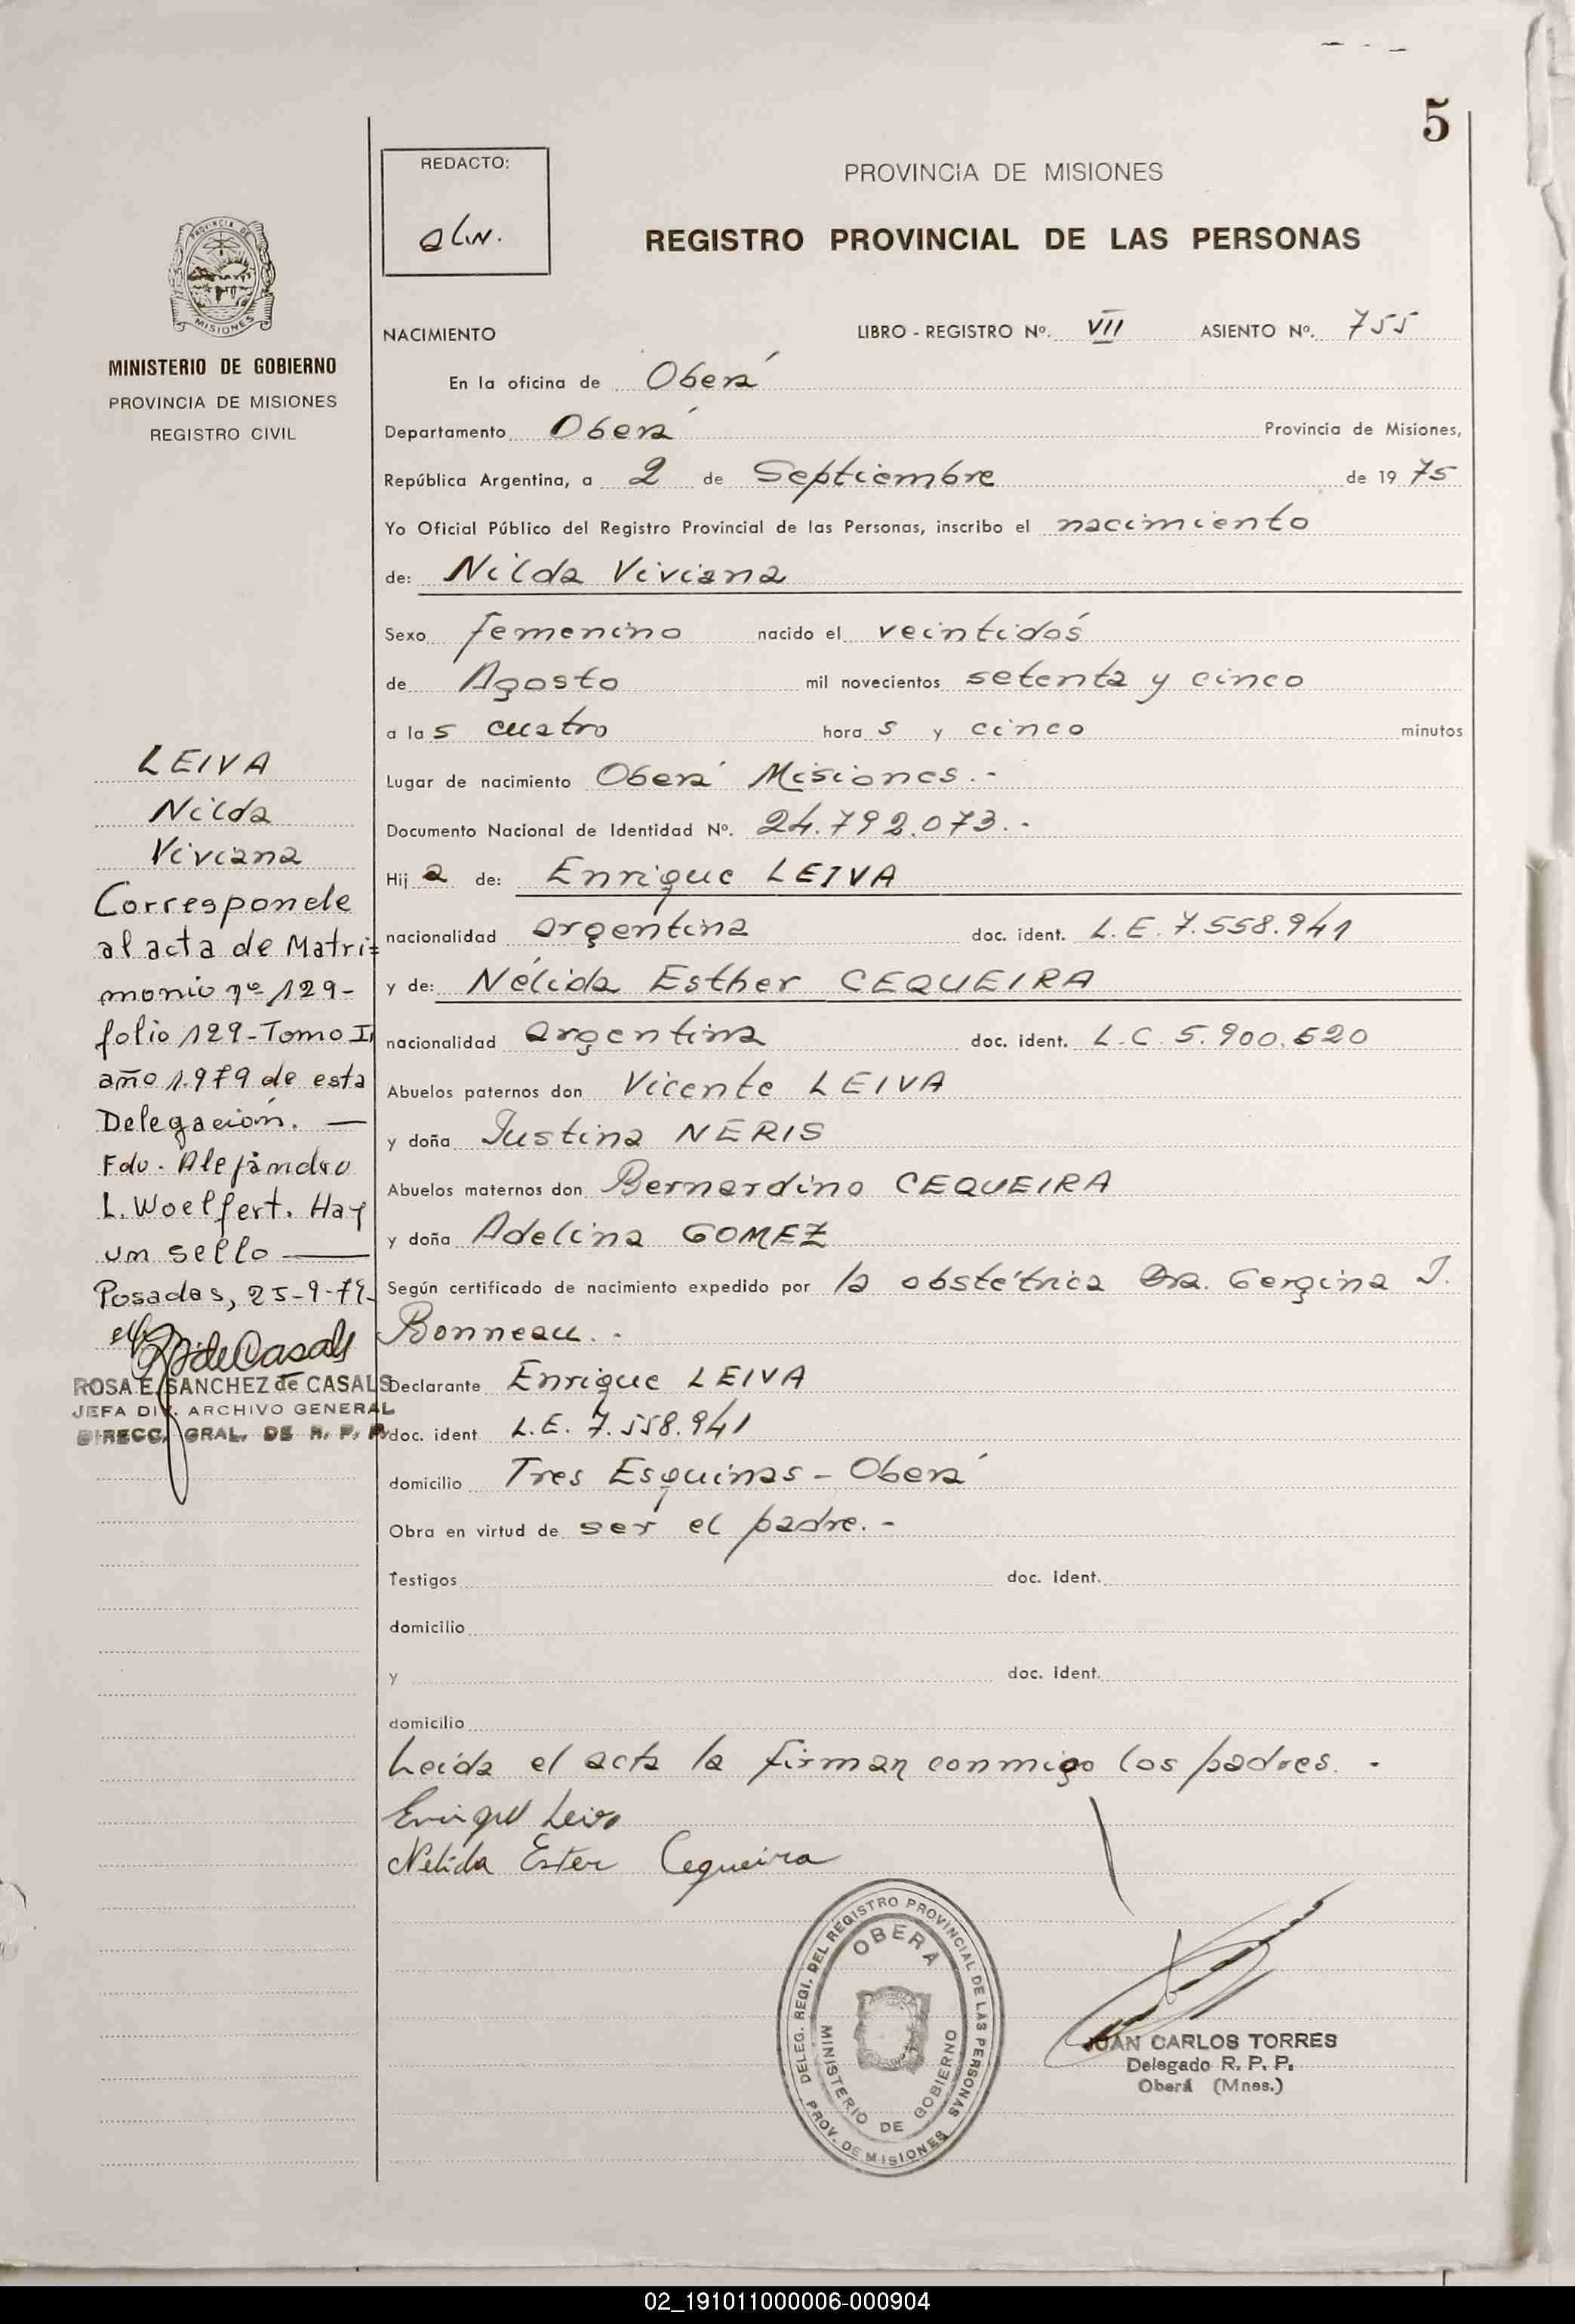 5
REDACTO:
PROVINCIA DE MISIONES
REGISTRO PROVINCIAL DE LAS PERSONAS
PROVINCIA DE
MISIONES
MINISTERIO DE GOBIERNO
PROVINCIA DE MISIONES
REGISTRO CIVIL
NACIMIENTO LIBRO - REGISTRO Nº. VII ASIENTO Nº. 755
En la oficina de Oberá
Departamento Oberá Provincia de Misiones,
República Argentina, a 2 de Septiembre de 1975
Yo Oficial Público del Registro Provincial de las Personas, inscribo el nacimiento
de: Nilda Viviana
Sexo femenino nacido el veintidós
de Agosto mil novecientos setenta y cinco
a las cuatro horas y cinco minutos
Lugar de nacimiento Oberá Misiones.-
Documento Nacional de Identidad Nº. 24.792.073.-
Hija de: Enrique LEIVA
nacionalidad argentina doc. ident. L.E. 7.558.941
y de: Nélida Esther CEQUEIRA
nacionalidad argentina doc. ident. L.C. 5.900.620
Abuelos paternos don Vicente LEIVA
y doña Justina NERIS
Abuelos maternos don Bernardino CEQUEIRA
y doña Adelina GOMEZ
Según certificado de nacimiento expedido por la obstétrica Dra. Gergina J.
Bonneau.-
Declarante Enrique LEIVA
doc. ident L.E. 7.558.941
domicilio Tres Esquinas - Oberá
Obra en virtud de ser el padre.-
Testigos doc. ident.
domicilio
y doc. ident.
domicilio
Leída el acta la firman conmigo los padres.-
Enrique Leiva
Nelida Ester Cequeira
LEIVA
Nilda
Viviana
Corresponde
al acta de Matri=
monio nº 129-
folio 129-Tomo I
año 1.979 de esta
Delegación. —
Fdo. Alejandro
L. Woelfert. Hay
un sello —
Posadas, 25-9-79-
de Casals
ROSA E. SANCHEZ de CASALS
JEFA DIV. ARCHIVO GENERAL
DIRECC. GRAL. DE R. P. P.
DELEG. REGI. DEL REGISTRO PROVINCIAL DE LAS PERSONAS
OBERA
MINISTERIO DE GOBIERNO
PROV. DE MISIONES
JUAN CARLOS TORRES
Delegado R. P. P.
Oberá (Mnes.)
02_191011000006-000904